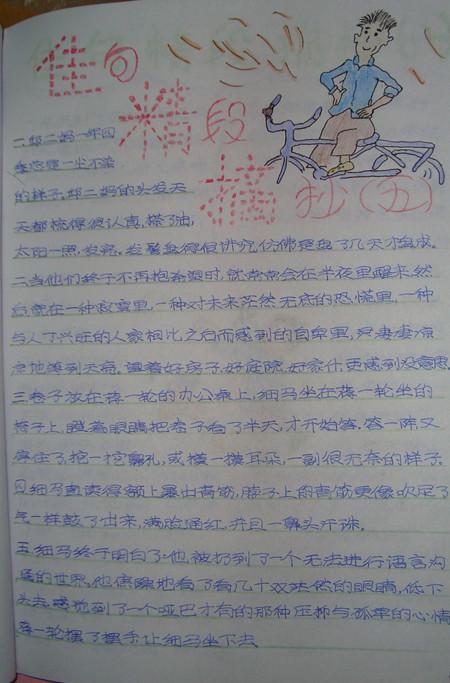 佳句
精段
摘抄(五)
一.邱二妈一年四
季总是一尘不染
的样子.邱二妈的头发天
天都梳得很认真,搽了油,
太阳一照,发亮.发髻盘得很讲究,仿佛是盘了几天才盘成.
二.当他们终于不再抱希望时,就常常会在半夜里醒来.然
后就在一种寂寞里,一种对未来茫然无底的恐慌里,一种
与人丁兴旺的人家相比之后而感到的自卑里,凄凄凉
凉地等到天亮.望着好房子,好庭院,好家什,更感到没意思.
三.卷子放在蒋一轮的办公桌上,细马坐在蒋一轮坐的
椅子上,瞪着眼睛把卷子看了半天,才开始答.答一阵又
停住了,挖一挖鼻孔,或摸一摸耳朵,一副很无奈的样子.
四.细马直读得额上暴出青筋,脖子上的青筋更像吹足了
气一样鼓了出来,满脸通红,并且一鼻头汗珠.
五.细马终于明白了:他被扔到了一个无法进行语言沟
通的世界.他焦躁地看了看几十双茫然的眼睛,低下
头去.感觉到了一个哑巴才有的那种压抑与孤单的心情
蒋一轮摆了摆手,让细马坐下去